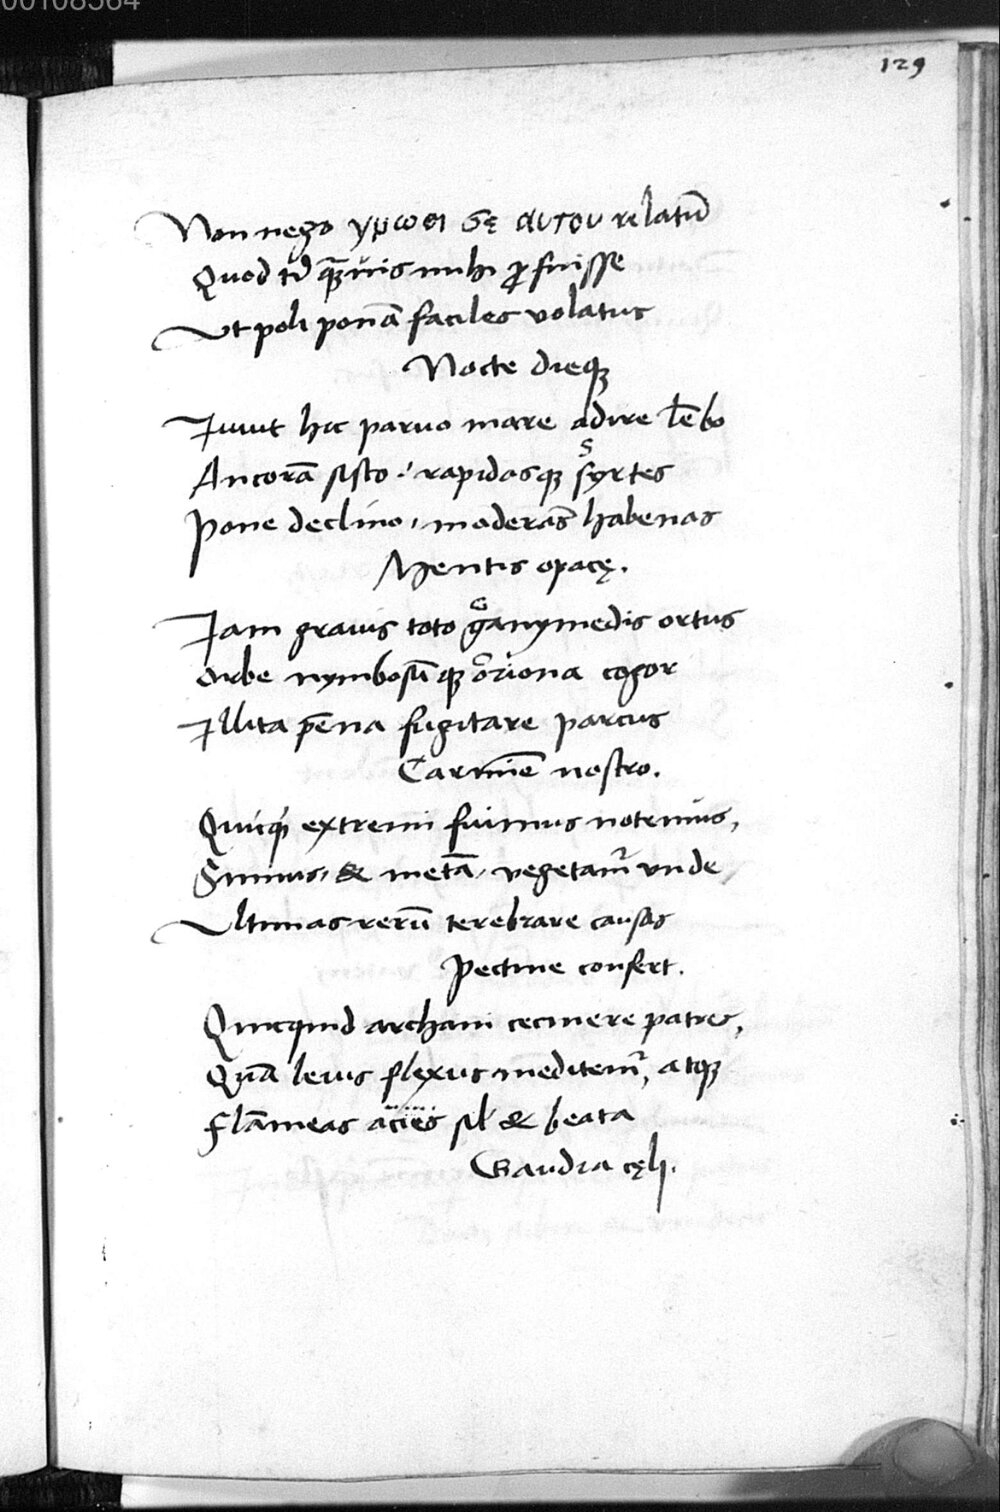 00108564
129
Non nego γρωθι σε αυτου relatū
Quod tñ quāuis mihi ꝓfuisse
Ut poli ponā faciles volatus
Nocte dieqꝫ
Iuuit hec paruo mare adire lēbo
Ancorā sisto: rapidasqꝫ syrtes
Pone declino, moderās habenas
Mentis opacę.
Iam grauis toto ganymedis ortus
Orbe nymbosūqꝫ oriona cogor
Illita pēna fugitare parcus
Carmīe nostro.
extremi fuimus
Simus, & metā, vegetamr̄ vnde
Ultimas rerū terebrare causas
Pectine confert.
Quicquid archani cecinere patres,
Quā leuis flexus meditemr̄, atqꝫ
Flāmeas acies sil & beata
Gaudia cęli.